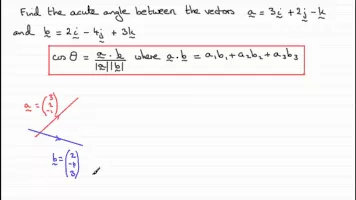 Find the acute angle between the vectors a = 3i + 2j - k
and b = 2i - 4j + 3k
cos θ = a . b / |a||b| where a . b = a₁b₁ + a₂b₂ + a₃b₃
a = (3 2 -1)
b = (2 -4 3)